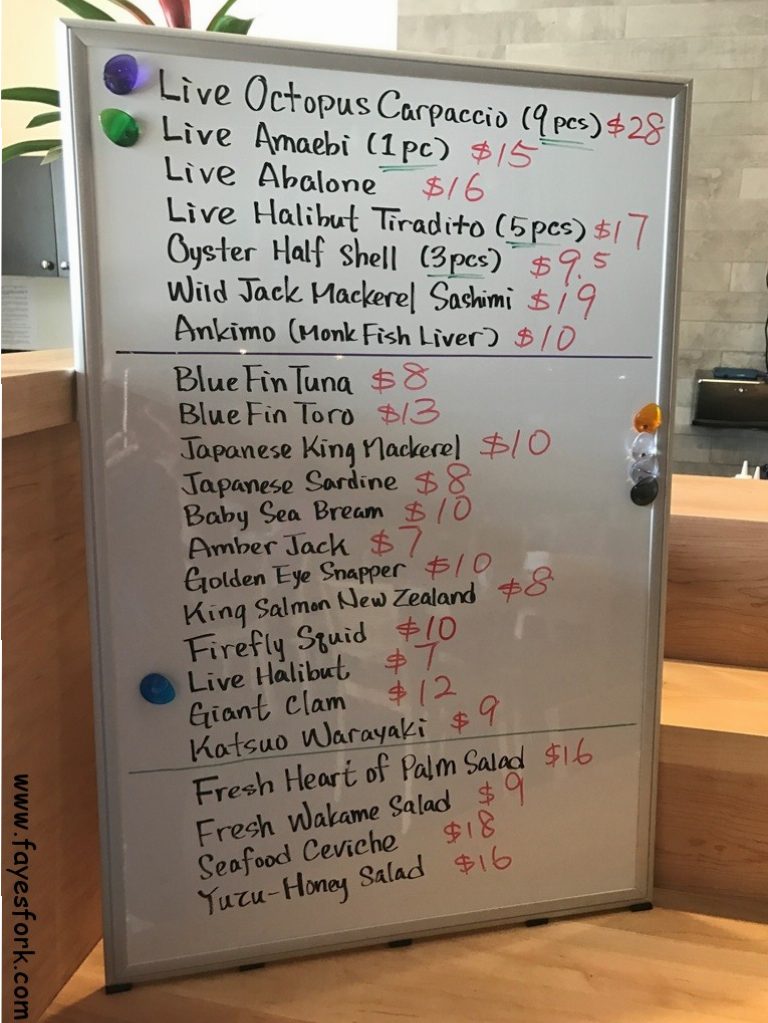 Live Octopus Carpaccio (9pcs) $28
Live Amaebi (1pc) $15
Live Abalone $16
Live Halibut Tiradito (5pcs) $17
Oyster Half Shell (3pcs) $9.5
Wild Jack Mackerel Sashimi $19
Ankimo (Monk Fish Liver) $10
Blue Fin Tuna $8
Blue Fin Toro $13
Japanese King Mackerel $10
Japanese Sardine $8
Baby Sea Bream $10
Amber Jack $7
Golden Eye Snapper $10
King Salmon New Zealand $8
Firefly Squid $10
Live Halibut $7
Giant Clam $12
Katsuo Warayaki $9
Fresh Heart of Palm Salad $16
Fresh Wakame Salad $9
Seafood Ceviche $18
Yuzu-Honey Salad $16
www.fayesfork.com